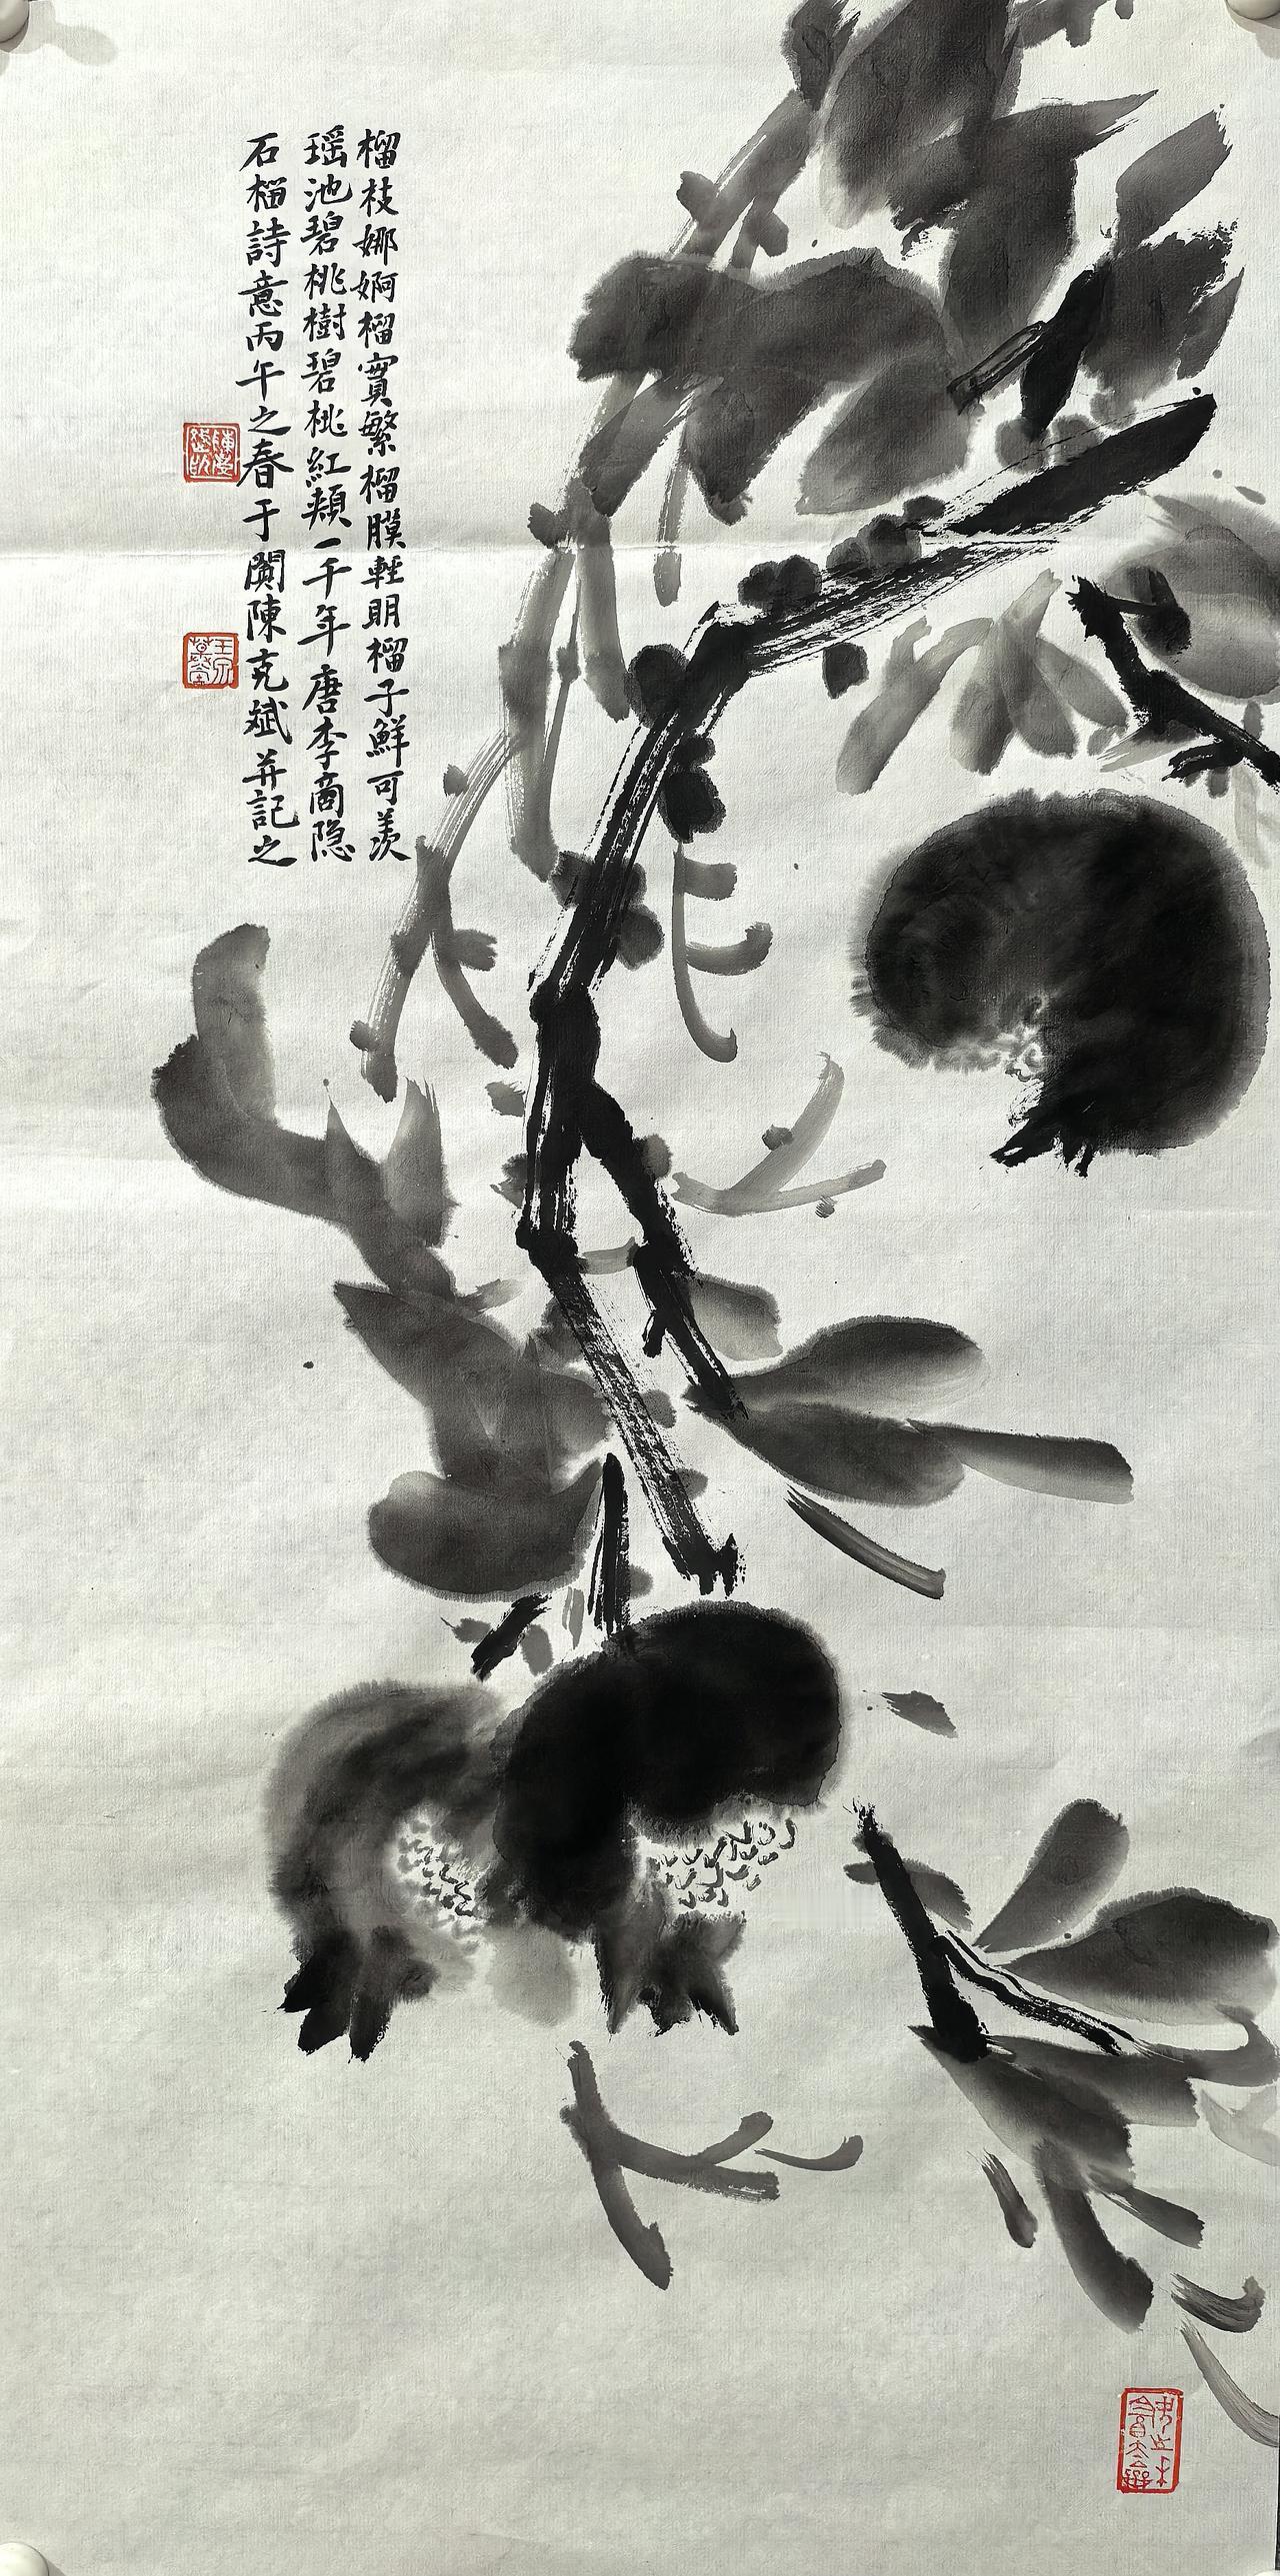 榴枝娜婀榴實繁榴膜輕明榴子鮮可羨
瑶池碧桃樹碧桃紅頰一千年唐李商隐
石榴詩意丙午之春于闐陳克斌并記之